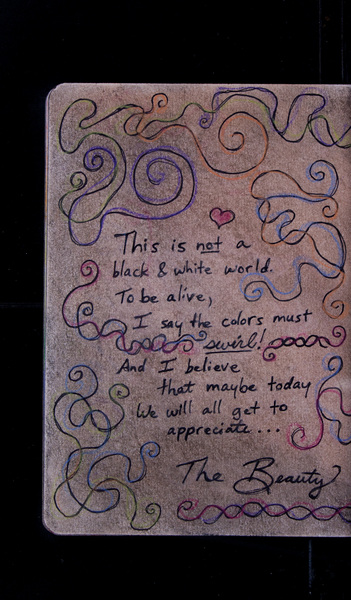 This is not a
black & white world.
To be alive,
I say the colors must
"swirl!"
And I believe
that maybe today
We will all get to
appreciate...
The Beauty